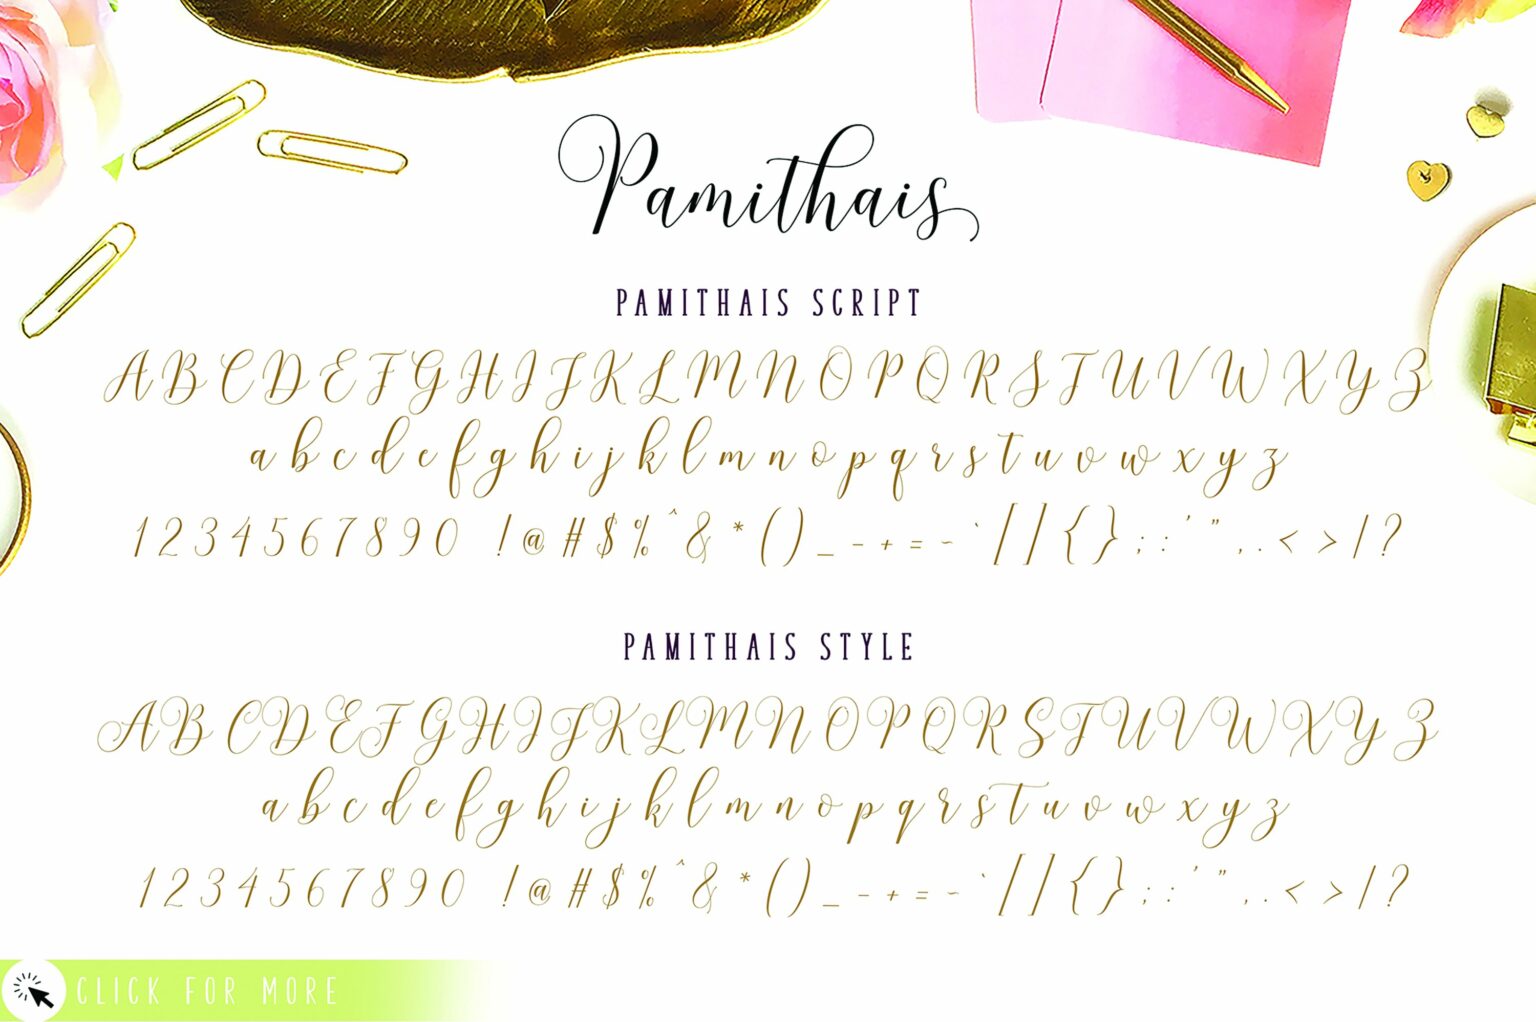 Pamithais
PAMITHAIS SCRIPT
A B C D E F G H I J K L M N O P Q R S T U V W X Y Z
a b c d e f g h i j k l m n o p q r s t u v w x y z
1 2 3 4 5 6 7 8 9 0 ! @ # $ % ^ & * ( ) _ - + = ~ ` [ ] { } ; : ' " , . < > / ?
PAMITHAIS STYLE
A B C D E F G H I J K L M N O P Q R S T U V W X Y Z
a b c d e f g h i j k l m n o p q r s t u v w x y z
1 2 3 4 5 6 7 8 9 0 ! @ # $ % ^ & * ( ) _ - + = ~ ` [ ] { } ; : ' " , . < > / ?
CLICK FOR MORE